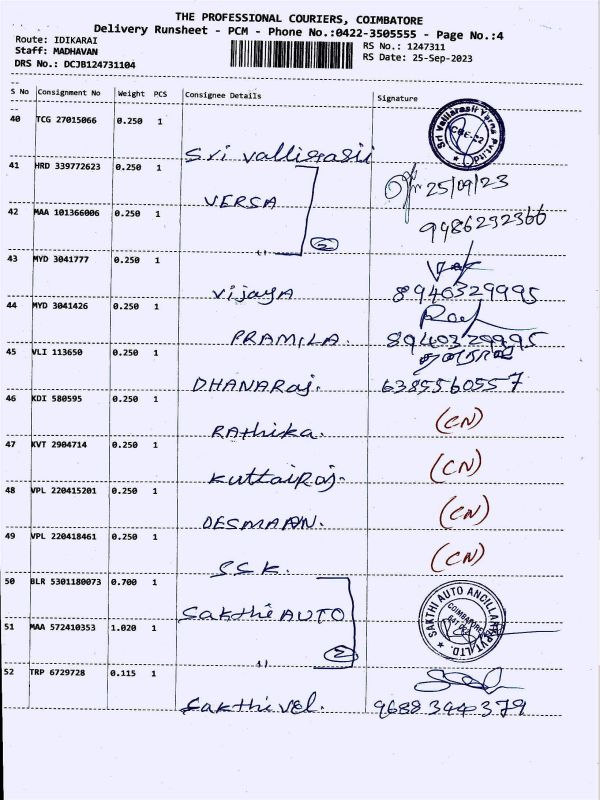 THE PROFESSIONAL COURIERS, COIMBATORE
Delivery Runsheet - PCM - Phone No.:0422-3505555 - Page No.:4
Route: IDIKARAI
RS No.: 1247311
Staff: MADHAVAN
RS Date: 25-Sep-2023
DRS No.: DCJB124731104
S No Consignment No Weight PCS Consignee Details Signature
40 TCG 27015066 0.250 1
Sri Valliarasii
Sri Valliarasii Yarns Pvt Ltd
CBE-22
41 HRD 339772623 0.250 1
VERSA
25/09/23
42 MAA 101366006 0.250 1
9486232366
2
43 MYD 3041777 0.250 1
Vijaya 8940329995
44 MYD 3041426 0.250 1
PRAMILA. 8940329995
45 VLI 113650 0.250 1
DHANARaj. 6385560557
46 KDI 580595 0.250 1
RAthika. (CN)
47 KVT 2904714 0.250 1
KuttaiRaj. (CN)
48 VPL 220415201 0.250 1
DESMAAN. (CN)
49 VPL 220418461 0.250 1
S.S.K. (CN)
50 BLR 5301180073 0.700 1
Sakthi AUTO
SAKTHI AUTO ANCILLARY PVT. LTD.
COIMBATORE
51 MAA 572410353 1.020 1
2
52 TRP 6729728 0.115 1
Sakthi vel. 9688344379